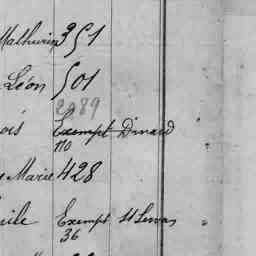 Mathurin 351
Léon 501
2989
ois Exempt Dinard
110
Marie 428
ile Exempt St Servan
36